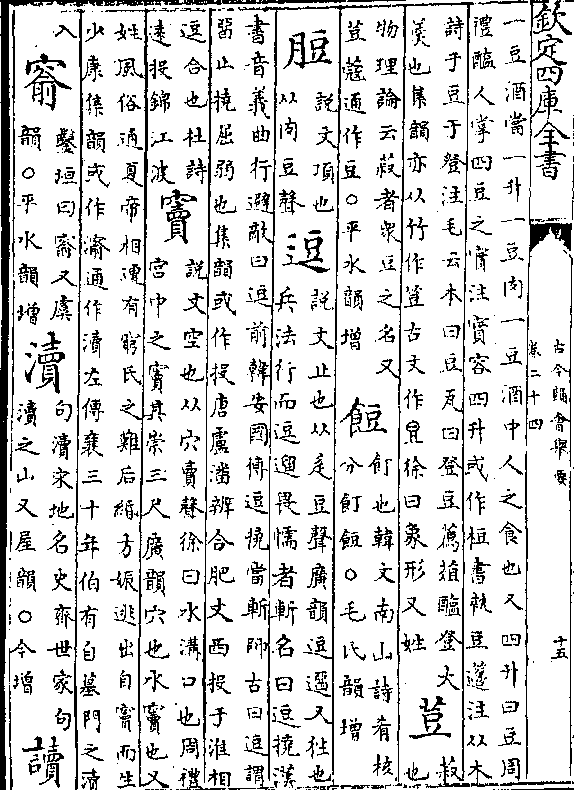 欽定四庫全書
古今韻會舉要
卷二十四
十五
一豆酒當一升一豆肉一豆酒中人之食也又四升曰豆周
禮醢人掌四豆之實注實容四升或作梪書執豆籩注从木
詩于豆于登注毛云木曰豆瓦曰登豆薦菹醢登大
羹也集韻亦从竹作䇺古文作徐曰象形又姓
荳 菽也
物理論云菽者衆豆之名又
荳蔻通作豆○平水韻增
餖 飣也韓文南山詩肴核
分飣餖○毛氏韻增
脰 說文項也
从肉豆聲
逗 說文止也从辵豆聲廣韻逗遛又住也
兵法行而逗遛畏懦者斬名曰逗撓漢
書音義曲行避敵曰逗前韓安國傳逗撓當斬師古曰逗謂
留止撓屈弱也集韻或作投唐盧潘辨合肥丈西投于淮相
逗合也杜詩
遠投錦江波
竇 説文空也从穴賣聲徐曰水溝口也周禮
宫中之竇其崇三尺廣韻穴也水竇也又
姓風俗通夏帝相遭有窮氏之難后緡方娠逃出自竇而生
少康集韻或作通作瀆左傳襄三十年伯有自墓門之瀆
入
窬 鑿垣曰窬又虞
韻○平水韻增
瀆 句瀆宋地名史齊世家句
瀆之山又屋韻○今增
讀